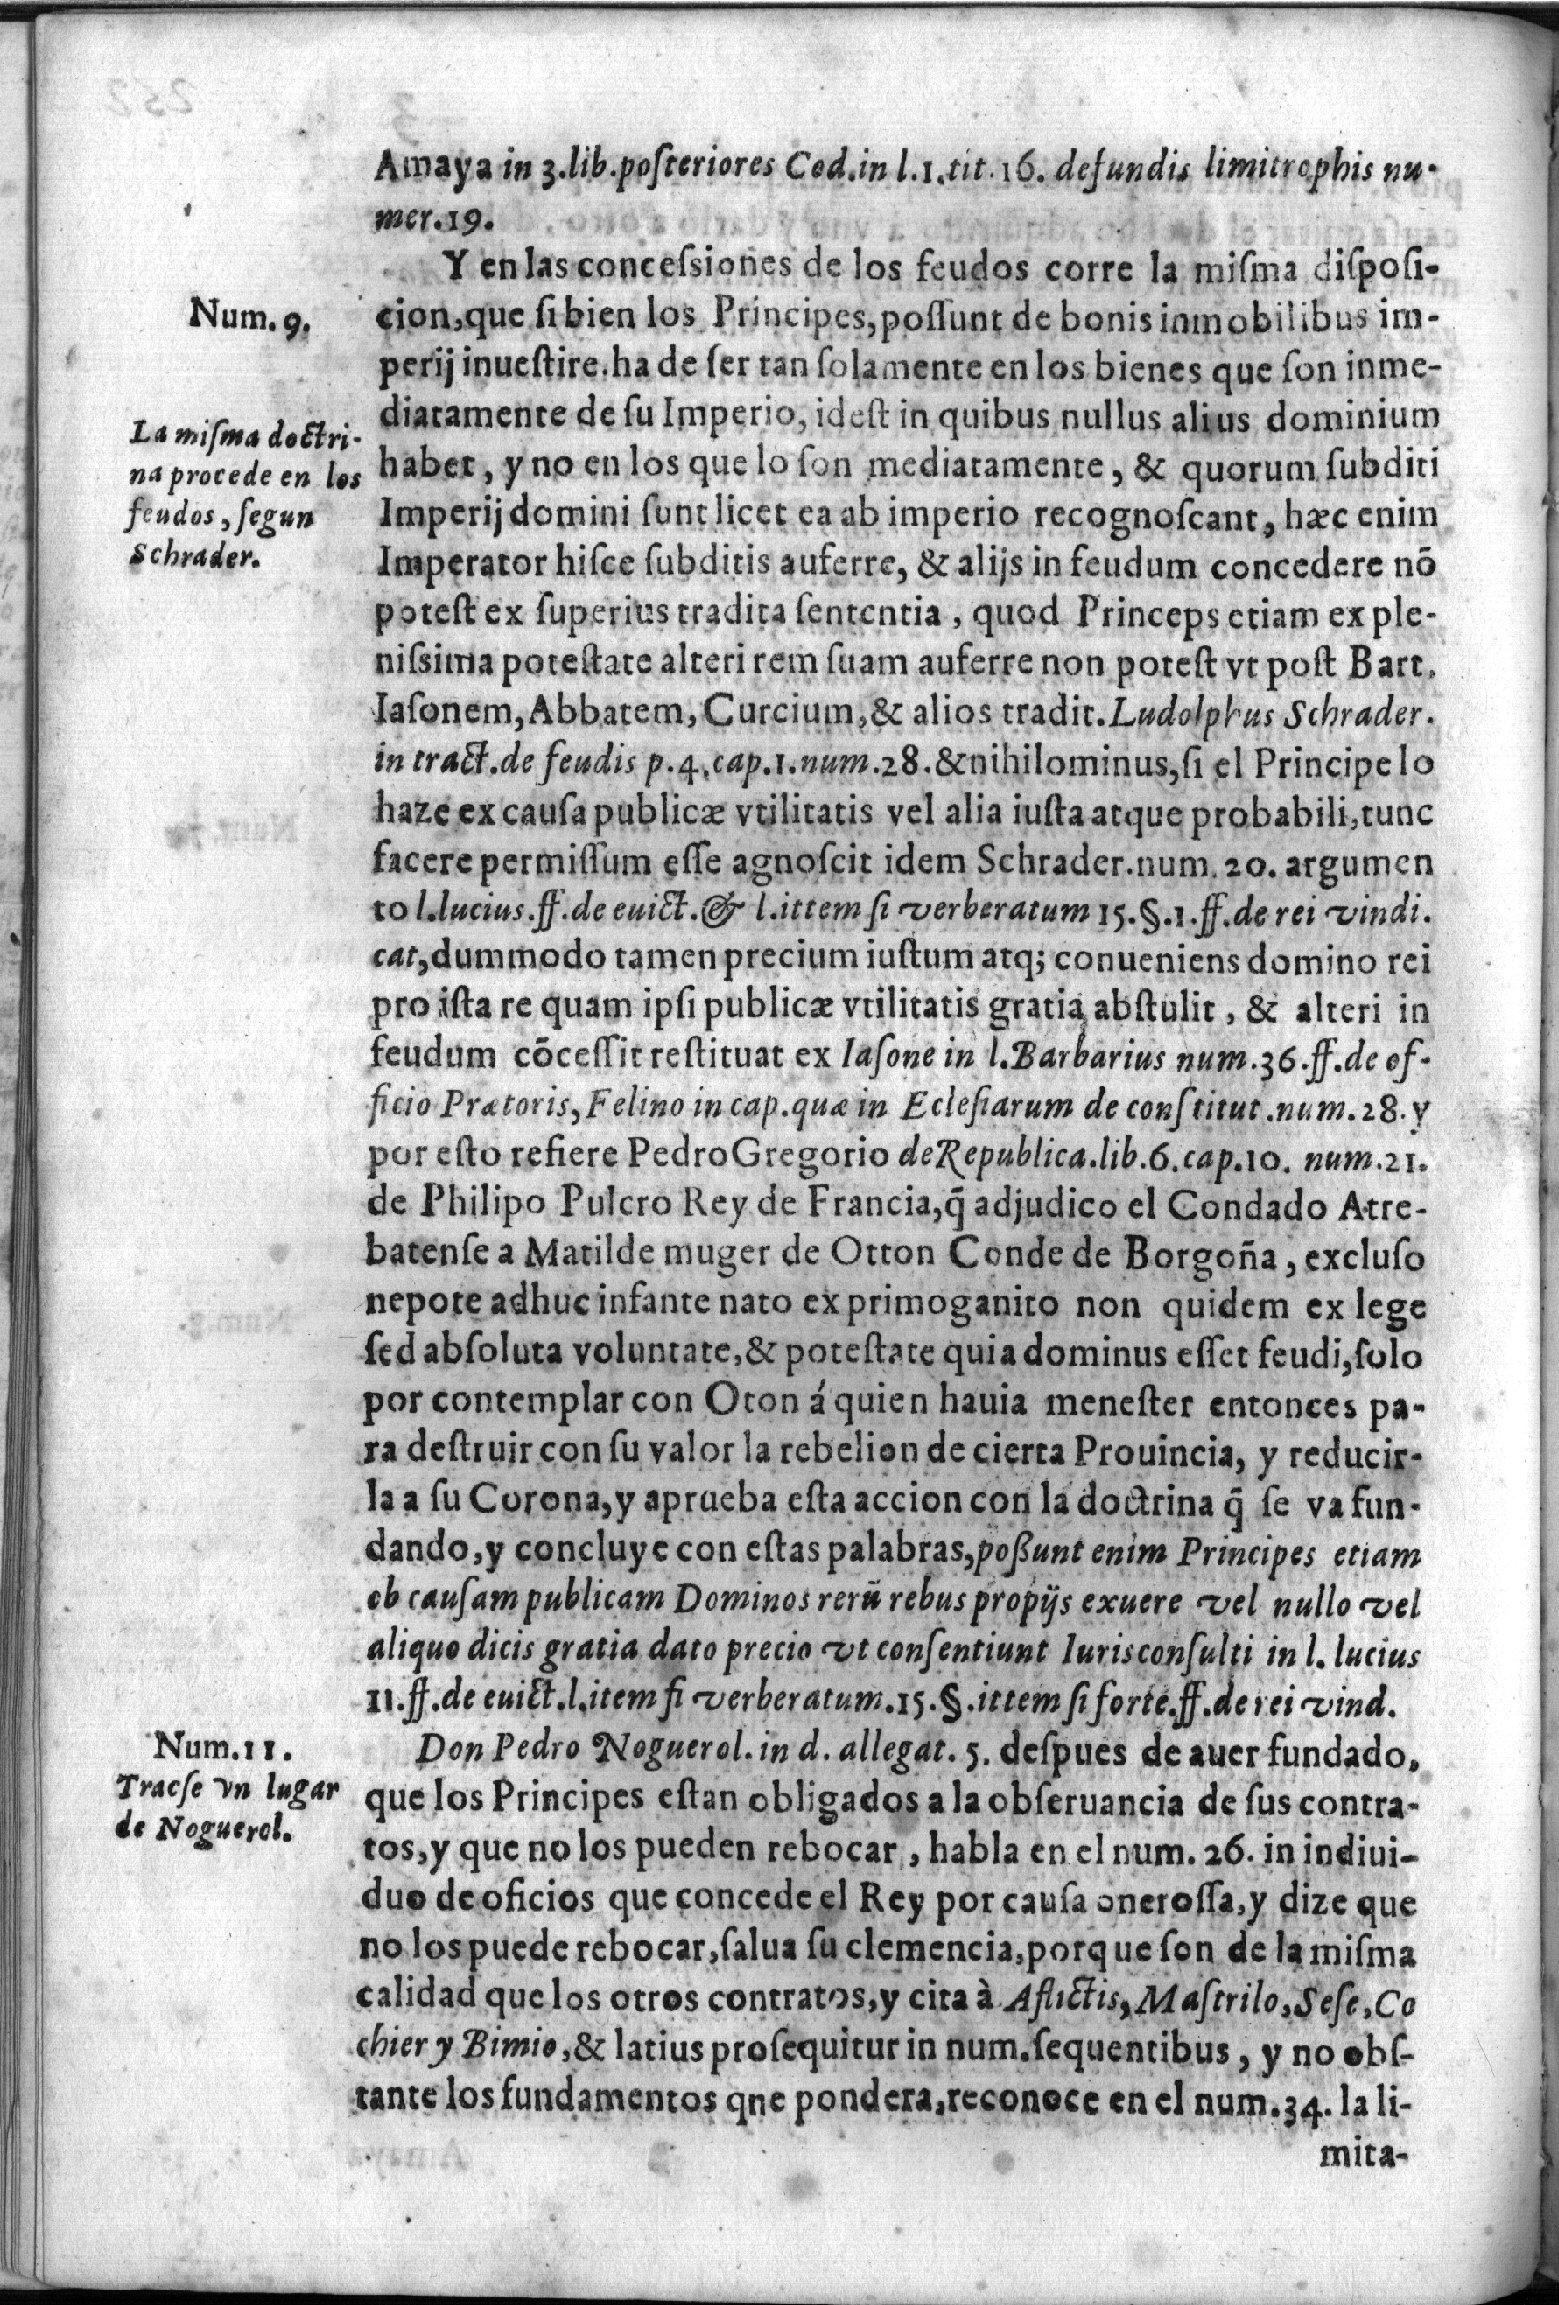 Amaya in 3.lib.posteriores Cod.in l.1.tit.16. defundis limitrophis nu-
mer.19.
Y en las concessiones de los feudos corre la misma disposi-
Num.9.
cion,que si bien los Principes,possunt de bonis inmobilibus im-
perij inuestire.ha de ser tan solamente en los bienes que son inme-
diatamente de su Imperio, idest in quibus nullus alius dominium
La misma doctri-
na procede en los
feudos, segun
Schrader.
habet, y no en los que lo son mediatamente, & quorum subditi
Imperij domini sunt licet ea ab imperio recognoscant, hæc enim
Imperator hisce subditis auferre, & alijs in feudum concedere nō
potest ex superius tradita sententia, quod Princeps etiam ex ple-
nissima potestate alteri rem suam auferre non potest vt post Bart.
Iasonem, Abbatem, Curcium, & alios tradit. Ludolphus Schrader.
in tract.de feudis p.4.cap.1.num.28.&nihilominus,si el Principe lo
haze ex causa publicæ vtilitatis vel alia iusta atque probabili,tunc
facere permissum esse agnoscit idem Schrader.num.20. argumen
to l.lucius.ff.de euict.& l.ittem si verberatum 15.§.1.ff.de rei vindi.
cat,dummodo tamen precium iustum atq; conueniens domino rei
pro ista re quam ipsi publicæ vtilitatis gratia abstulit, & alteri in
feudum cōcessit restituat ex Iasone in l.Barbarius num.36.ff.de of-
ficio Prætoris, Felino in cap.quæ in Eclesiarum de constitut.num.28.y
por esto refiere Pedro Gregorio de Republica.lib.6.cap.10. num.21.
de Philipo Pulcro Rey de Francia,q̃ adjudico el Condado Atre-
batense a Matilde muger de Otton Conde de Borgoña, excluso
nepote adhuc infante nato ex primoganito non quidem ex lege
sed absoluta voluntate,& potestate quia dominus esset feudi,solo
por contemplar con Oton á quien hauia menester entonces pa-
ra destruir con su valor la rebelion de cierta Prouincia, y reducir-
la a su Corona, y aprueba esta accion con la doctrina q̃ se va fun-
dando, y concluye con estas palabras,possunt enim Principes etiam
ob causam publicam Dominos rerū rebus propijs exuere vel nullo vel
aliquo dicis gratia dato precio vt consentiunt Iurisconsulti in l. lucius
11.ff.de euict.l.item si verberatum.15.§.ittem si forte.ff.de rei vind.
Num.11.
Traese vn lugar
de Noguerol.
Don Pedro Noguerol.in d. allegat. 5. despues de auer fundado,
que los Principes estan obligados a la obseruancia de sus contra-
tos, y que no los pueden rebocar, habla en el num. 26. in indiui-
duo de oficios que concede el Rey por causa onerossa, y dize que
no los puede rebocar, salua su clemencia,porque son de la misma
calidad que los otros contratos, y cita à Aflictis, Mastrilo, Sese, Co
chier y Bimio,& latius prosequitur in num.sequentibus, y no obs-
tante los fundamentos qne pondera,reconoce en el num.34. la li-
mita-